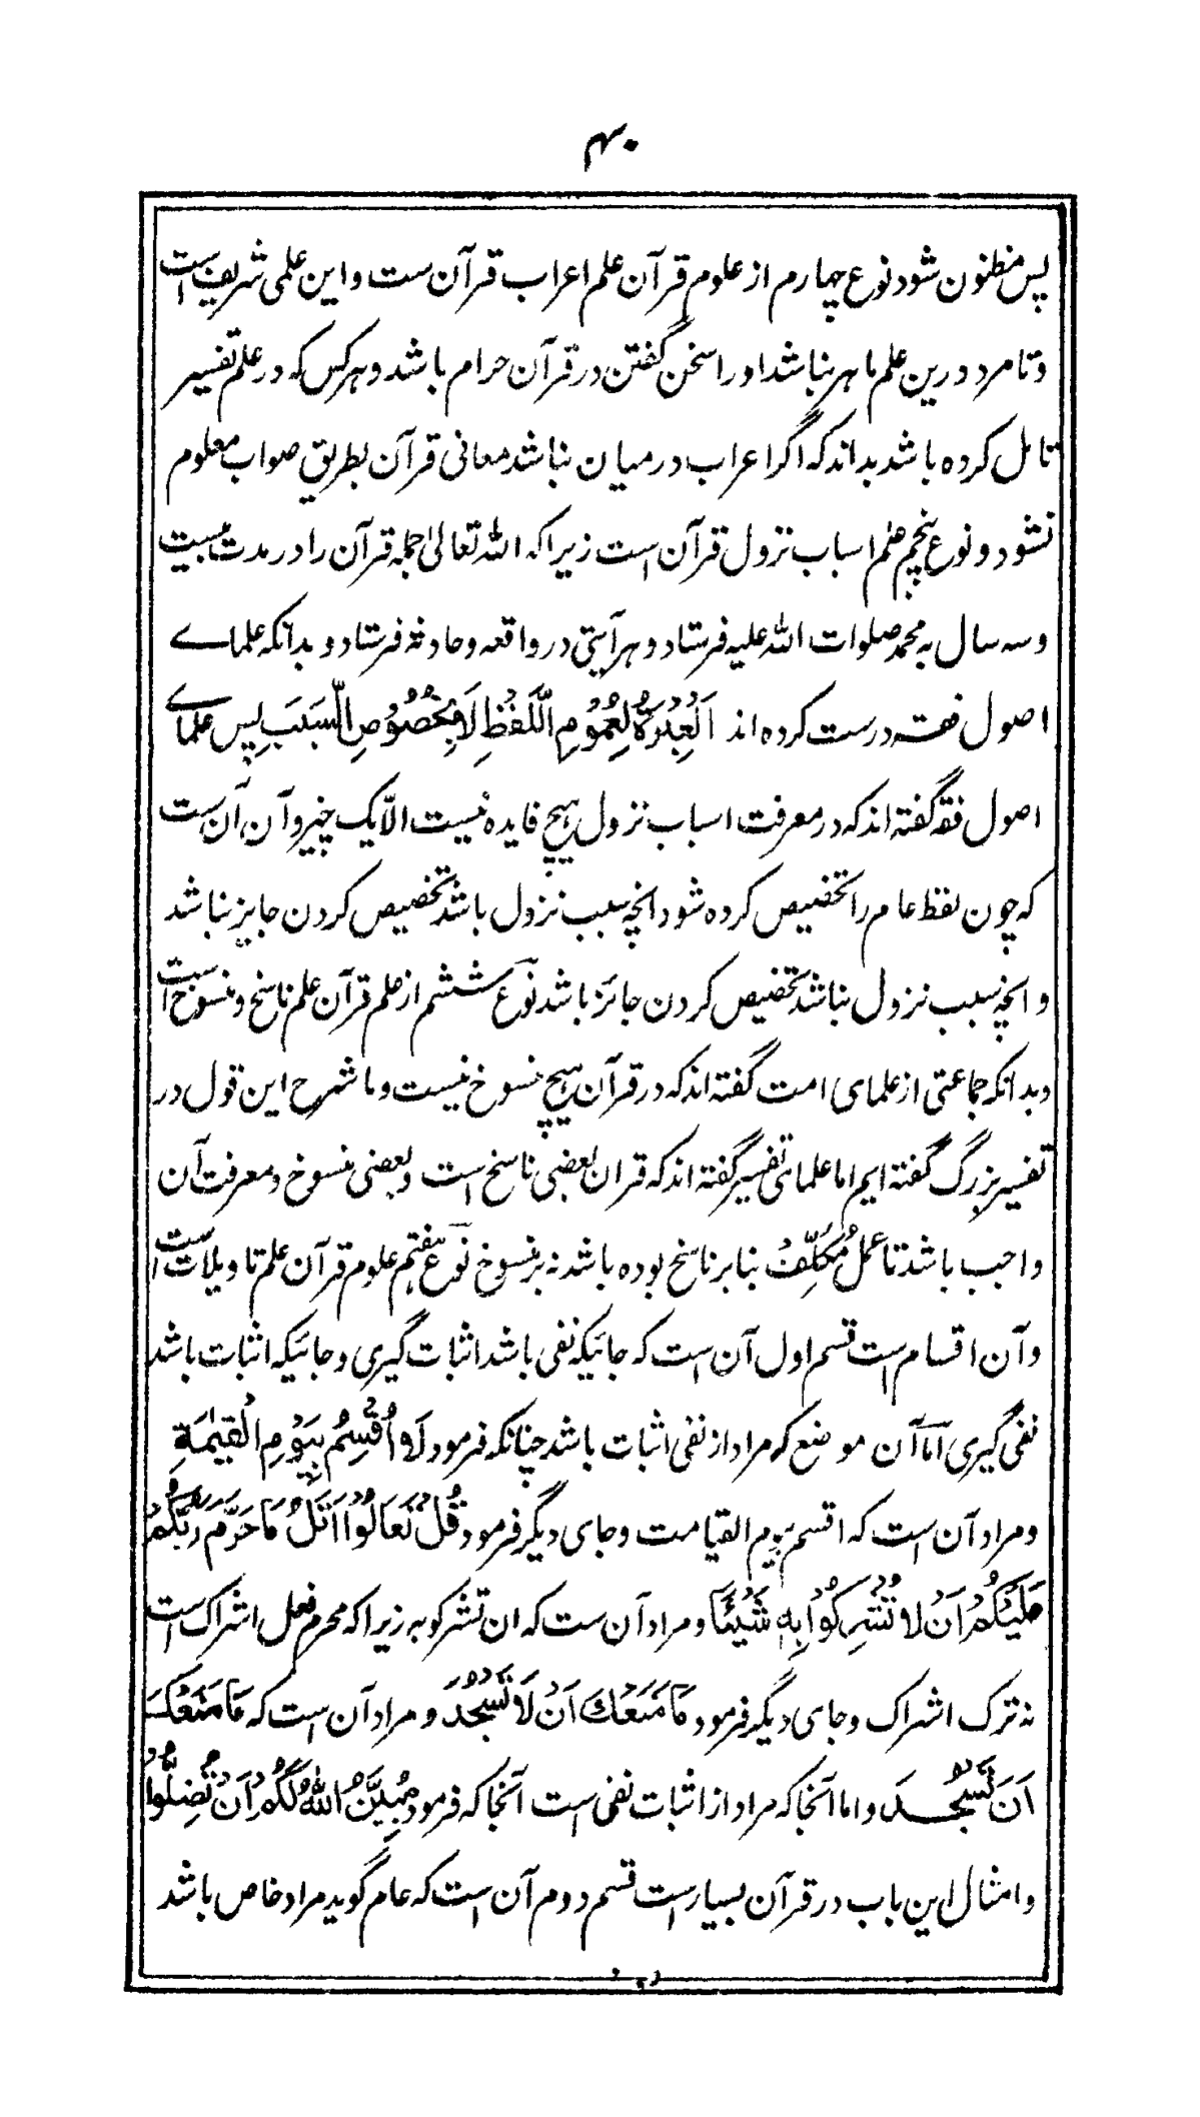 ۴۰
پس مظنون شود نوع چهارم از علوم قرآن علم اعراب قرآن ست و این علمی شریف است
و تا مرد درین علم ماهر نباشد او را سخن گفتن در قرآن حرام باشد و هر کس که در علم تفسیر
تامل کرده باشد بداند که اگر اعراب در میان نباشد معانی قرآن بطریق صواب معلوم
نشود و نوع پنجم علم اسباب نزول قرآن است زیرا که الله تعالیٰ جمله قرآن را در مدت بیست
و سه سال به محمد صلوات الله علیه فرستاد و هر آیتی در واقعه و حادثهٔ فرستاد و بدانکه علماے
اصول فقه درست کرده اند اَلْعِبْرَةُ لِعُمُوْمِ اللَّفْظِ لَا بِخُصُوْصِ السَّبَبِ پس علماے
اصول فقه گفته اند که در معرفت اسباب نزول هیچ فایده نیست الّا یک چیز و آن آن ست
که چون لفظ عام را تخصیص کرده شود انچه سبب نزول باشد تخصیص کردن جایز نباشد
و انچه سبب نزول نباشد تخصیص کردن جائز باشد نوع ششم از علم قرآن علم ناسخ و منسوخ است
و بدانکه جماعتی از علمای امت گفته اند که در قرآن هیچ منسوخ نیست و ما شرح این قول در
تفسیر بزرگ گفته ایم اما علمای تفسیر گفته اند که قران بعضی ناسخ است و بعضی منسوخ و معرفت آن
واجب باشد تا عمل مُکَلِّفْ بنا بر ناسخ بوده باشد نه بر منسوخ نوع هفتم علوم قرآن علم تاویلات است
و آن اقسام است قسم اول آن است که جائیکه نفی باشد اثبات گیری و جائیکه اثبات باشد
نفی گیری اما آن موضع که مراد از نفی اثبات باشد چنانکه فرمود لَا اُقْسِمُ بِيَوْمِ الْقِيٰمَةِ
و مراد آن است که اقسم بیوم القیامت و جای دیگر فرمود قُلْ تَعَالَوْا اَتْلُ مَا حَرَّمَ رَبُّكُمْ
عَلَيْكُمْ اَنْ لَا تُشْرِكُوْا بِهٖ شَيْئًا و مراد آن ست که ان تشرکو به زیرا که محرم فعل اشراک است
نه ترک اشراک و جای دیگر فرمود مَا مَنَعَكَ اَنْ لَا تَسْجُدَ و مراد آن است که مَا مَنَعَكَ
اَنْ تَسْجُدَ و اما آنجا که مراد از اثبات نفی است آنجا که فرمود يُبَيِّنُ اللهُ لَكُمْ اَنْ تَضِلُّوْا
و امثال این باب در قرآن بسیار است قسم دوم آن است که عام گوید مراد خاص باشد